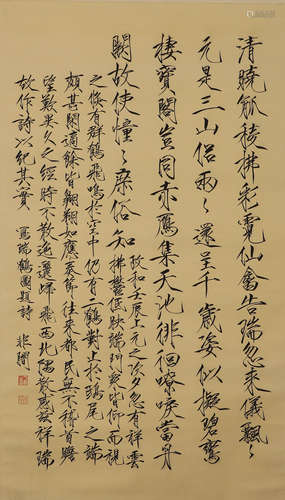 清曉觚稜拂彩霓仙禽告瑞忽来儀飄〻
元是三山侶兩〻還呈千歲姿似擬碧鸞
棲寶閣豈同赤鴈集天池徘徊嘹唳當丹
闕故使憧〻庶俗知
政和壬辰上元之次夕忽有祥雲
拂鬱低映端門衆皆仰而視
之倏有群鶴飛鳴於空中仍有二鶴對止於鴟尾之端
頗甚閑適餘皆翱翔如應奏節往来都民無不稽首瞻
望歎異久之經時不散迤邐歸飛西北隅散感茲祥瑞
故作詩以紀其實 寫瑞鶴圖題詩 非闇